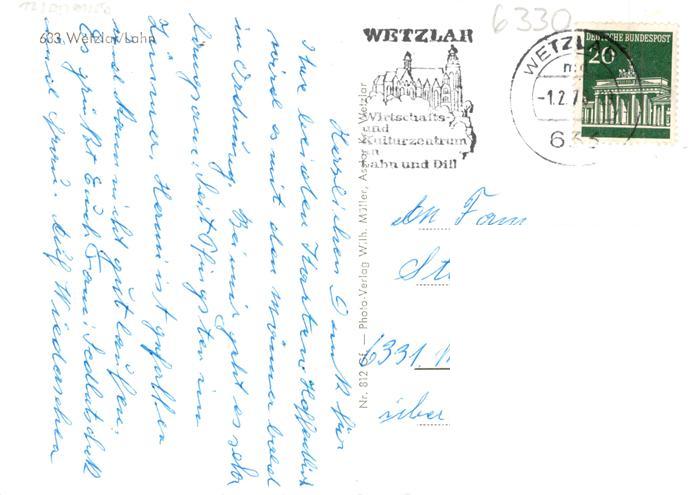 6330
633 Wetzlar/Lahn
WETZLAR
Wirtschafts-
und
Kulturzentrum
an
Lahn und Dill
WETZLA
-1.2.7
633
DEUTSCHE BUNDESPOST
20
Nr. 812 — Photo-Verlag Wilh. Müller, Wetzlar
Herzlichen Dank für
Ihre beiden Karten Hoffentlich
wird es mit dem Männe bald
in Ordnung. Bei mir geht es sehr
langsam. Seit Pfingsten im
Zimmer, Hanni ist gefallen
und kann nicht gut laufen.
Es grüßt Euch Fam.
und Frau. Auf Wiedersehen
An Fam
St
6331
über